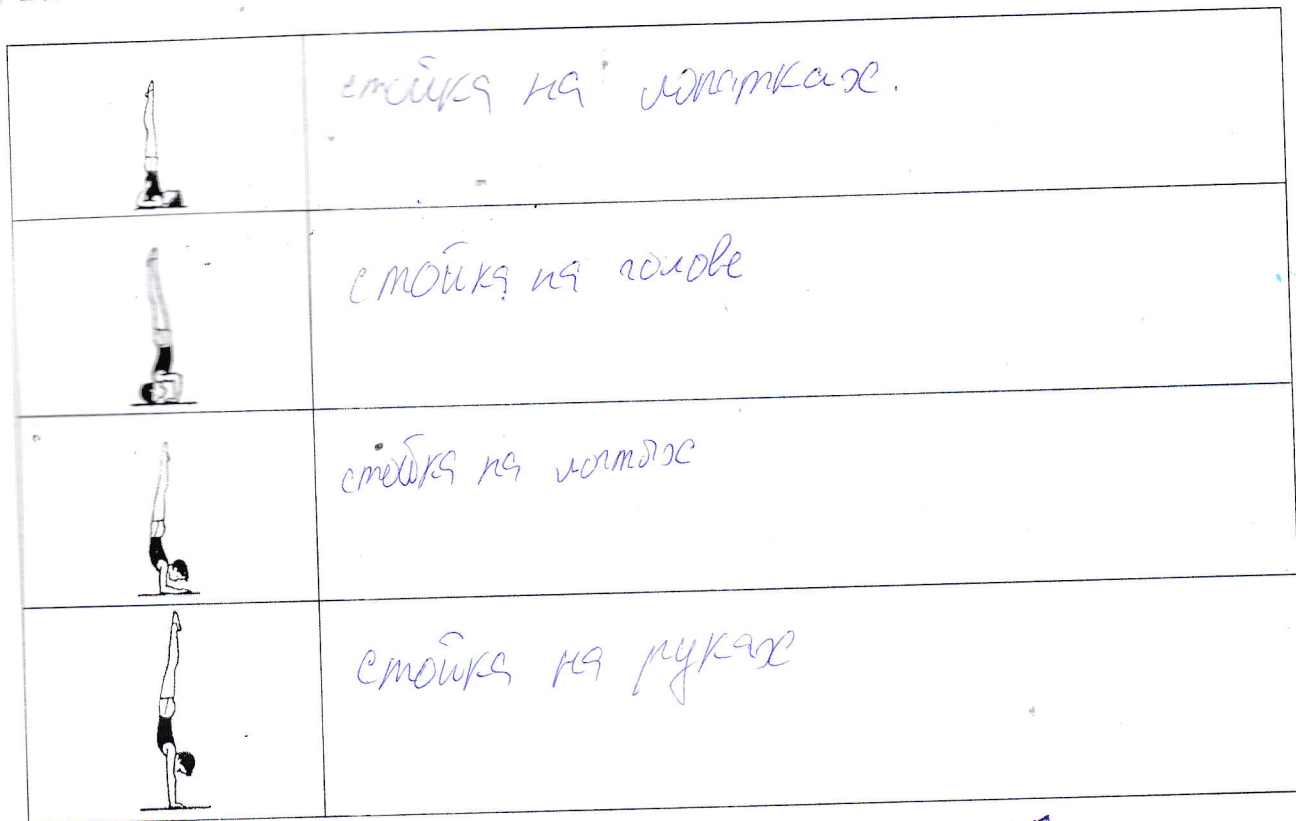 стойка на лопатках.
стойка на голове
стойка на локтях
стойка на руках